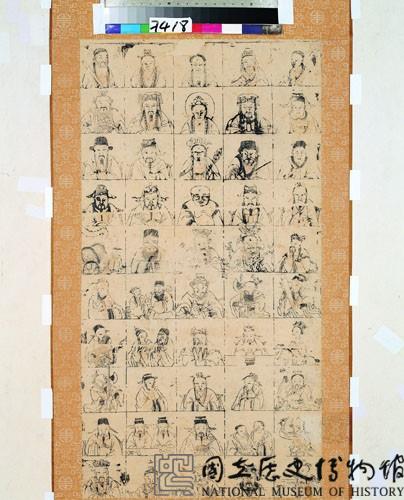 7418
國立歷史博物館
NATIONAL MUSEUM OF HISTORY